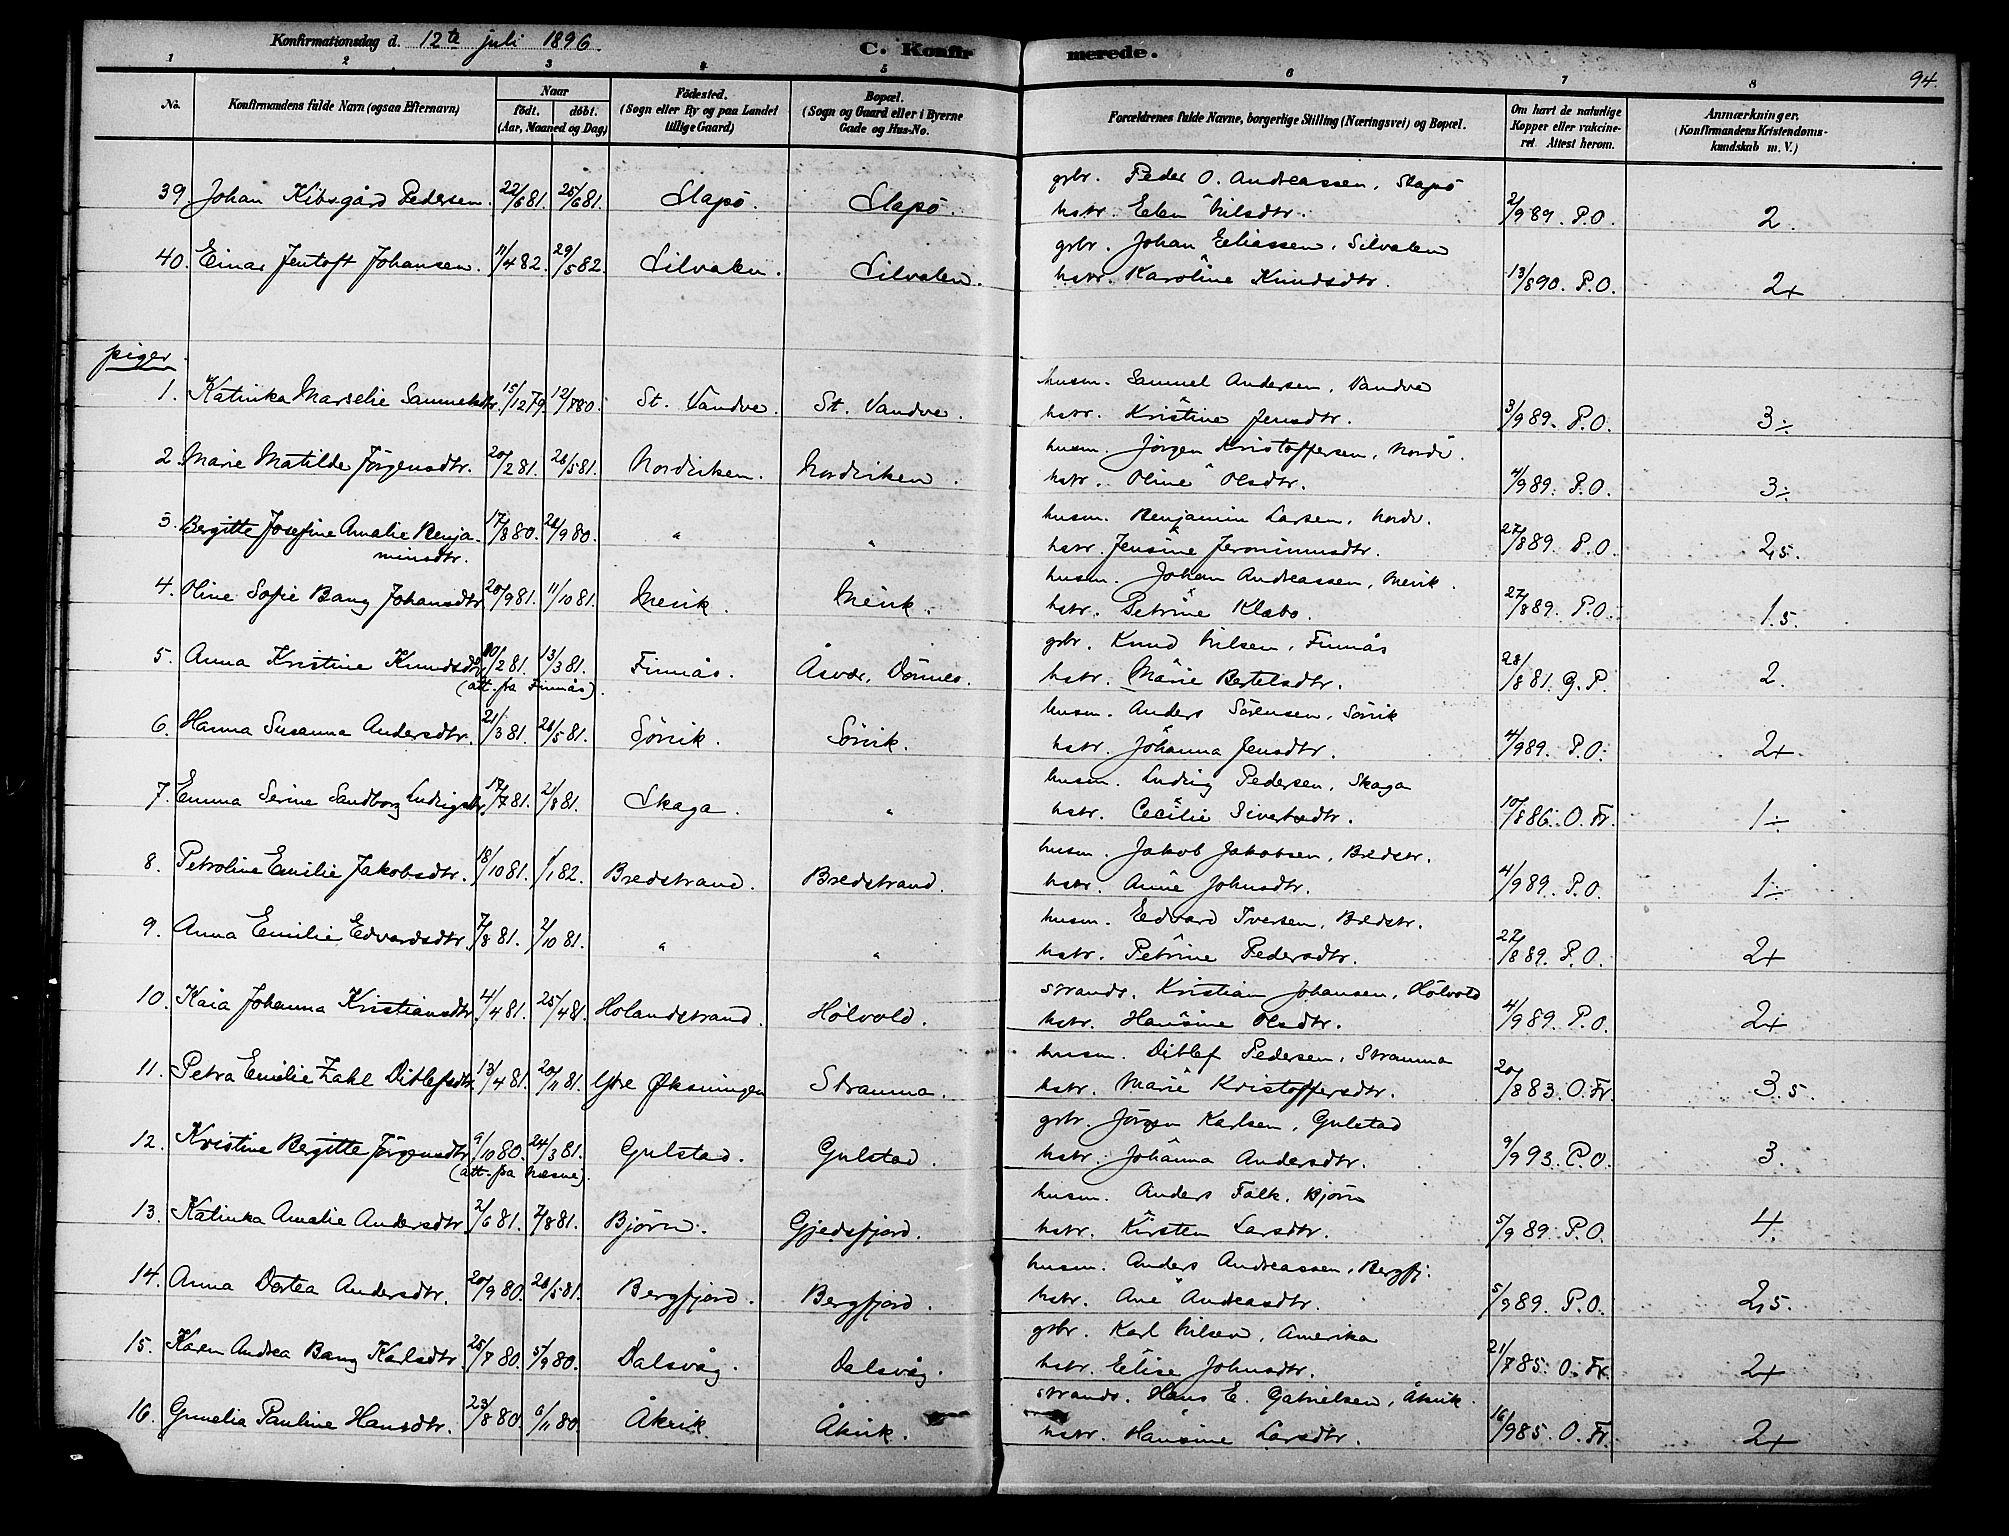 Konfirmationsdag d. 12te juli 1896.
C. Konfirmerede.
94.
1 2 3 4 5 6 7 8
No. Konfirmandens fulde Navn (ogsaa Efternavn) Naar født. døbt. (Aar, Maaned og Dag) Fødested. (Sogn eller By og paa Landet tillige Gaard) Bopæl. (Sogn og Gaard eller i Byerne Gade og Hus-No. Forældrenes fulde Navne, borgerlige Stilling (Næringsvei) og Bopæl. Om havt de naturlige Kopper eller vakcineret. Attest herom. Anmærkninger. (Konfirmandens Kristendomskundskab m. V.)
gbr. Peder O. Andreassen, Slapö
39 Johan Kibsgård Pedersen. 22/6 81. 25/6 81. Slapö. Slapö. hstr. Elen Nilsdtr. 2/9 89. P.O. 2.
gbr. Johan Eliassen, Silvalen
40. Einar Jentoft Johansen. 11/4 82. 29/5 82. Silvalen. Silvalen. hstr. Karoline Knudsdtr. 13/8 90. P.O. 2+
piger.
husm. Samuel Andersen, Vandve
1. Katinka Marselie Samuelsdtr. 15/12 79. 12/8 80. St. Vandve. St. Vandve. hstr. Kristine Jensdtr. 3/9 89. P.O. 3÷
husm. Jörgen Kristoffersen, Nordv.
2. Marie Matilde Jörgensdtr. 20/2 81. 26/5 81. Nordviken. Nordviken. hstr. Oline Olsdtr. 4/9 89. P.O. 3÷
husm. Benjamin Larsen, Nordv.
3. Bergitte Josefine Amalie Benja- 17/8 80. 26/9 80. " " hstr. Jensine Jeronimusdtr. 27/8 89. P.O. 2,5.
minsdtr.
husm. Johan Andreassen, Mevik.
4. Oline Sofie Bang Johansdtr. 20/9 81. 11/10 81. Mevik. Mevik. hstr. Petrine Klabo. 27/8 89. P.O. 1.5.
gbr. Knud Nilsen, Finnås
5. Anna Kristine Knudsdtr. 10/2 81. 13/3 81. Finnås. Åsvær, Dönnes. hstr. Marie Bertelsdtr. 28/8 81. G.P. 2.
(att. fra Finnås).
husm. Anders Sörensen, Sörvik
6. Hanna Susanna Andersdtr. 21/3 81. 26/5 81. Sörvik. Sörvik. hstr. Johanna Jensdtr. 4/9 89. P.O. 2+
husm. Ludvig Pedersen, Skaga
7. Emma Serine Sandborg Ludvigsdtr. 17/7 81. 21/8 81. Skaga. " hstr. Cecilie Sivertsdtr. 10/8 86. O. Fr. 1÷
husm. Jakob Jakobsen, Bredstr.
8. Petroline Emilie Jakobsdtr. 18/10 81. 1/1 82. Bredstrand. Bredstrand. hstr. Anne Johnsdtr. 4/9 89. P.O. 1÷
husm. Edvard Iversen, Bredstr.
9. Anna Emilie Edvardsdtr. 7/8 81. 2/10 81. " " hstr. Petrine Pedersdtr. 27/8 89. P.O. 2+
strands. Kristian Johansen, Hölvold
10. Kaia Johanna Kristiansdtr. 4/4 81. 25/4 81. Holandstrand. Hölvold. hstr. Hansine Olsdtr. 4/9 89. P.O. 2+
husm. Ditlef Pedersen, Stramma
11. Petra Emilie Zahl Ditlefsdtr. 13/4 81. 20/11 81. Ytre Øksningen Stramma. hstr. Marie Kristoffersdtr. 20/8 83. O. Fr. 3.5.
gbr. Jörgen Karlsen, Gulstad
12. Kristine Bergitte Jörgensdtr. 9/10 80. 24/3 81. Gulstad. Gulstad. hstr. Johanna Andersdtr. 9/9 93. C.O. 3.
(att. fra Næsne).
husm. Anders Falk, Björn
13. Katinka Amalie Andersdtr. 2/6 81. 7/8 81. Björn. Gjedsfjord. hstr. Kirsten Larsdtr. 5/9 89. P.O. 4.
husm. Anders Andreassen, Bergfj.
14. Anna Dortea Andersdtr. 20/9 80. 26/5 81. Bergfjord. Bergfjord. hstr. Ane Andreasdtr. 5/9 89. P.O. 2,5.
gbr. Karl Nilsen, Amerika
15. Karen Andrea Bang Karlsdtr. 25/7 80. 5/9 80. Dalsvåg. Dalsvåg. hstr. Elise Johnsdtr. 21/7 85. O. Fr. 2+
strands. Hans E. Gabrielsen, Åkvik.
16. Gunelia Pauline Hansdtr. 23/8 80. 6/11 80. Åkvik. Åkvik. hstr. Hansine Larsdtr. 16/9 85. O. Fr. 2+